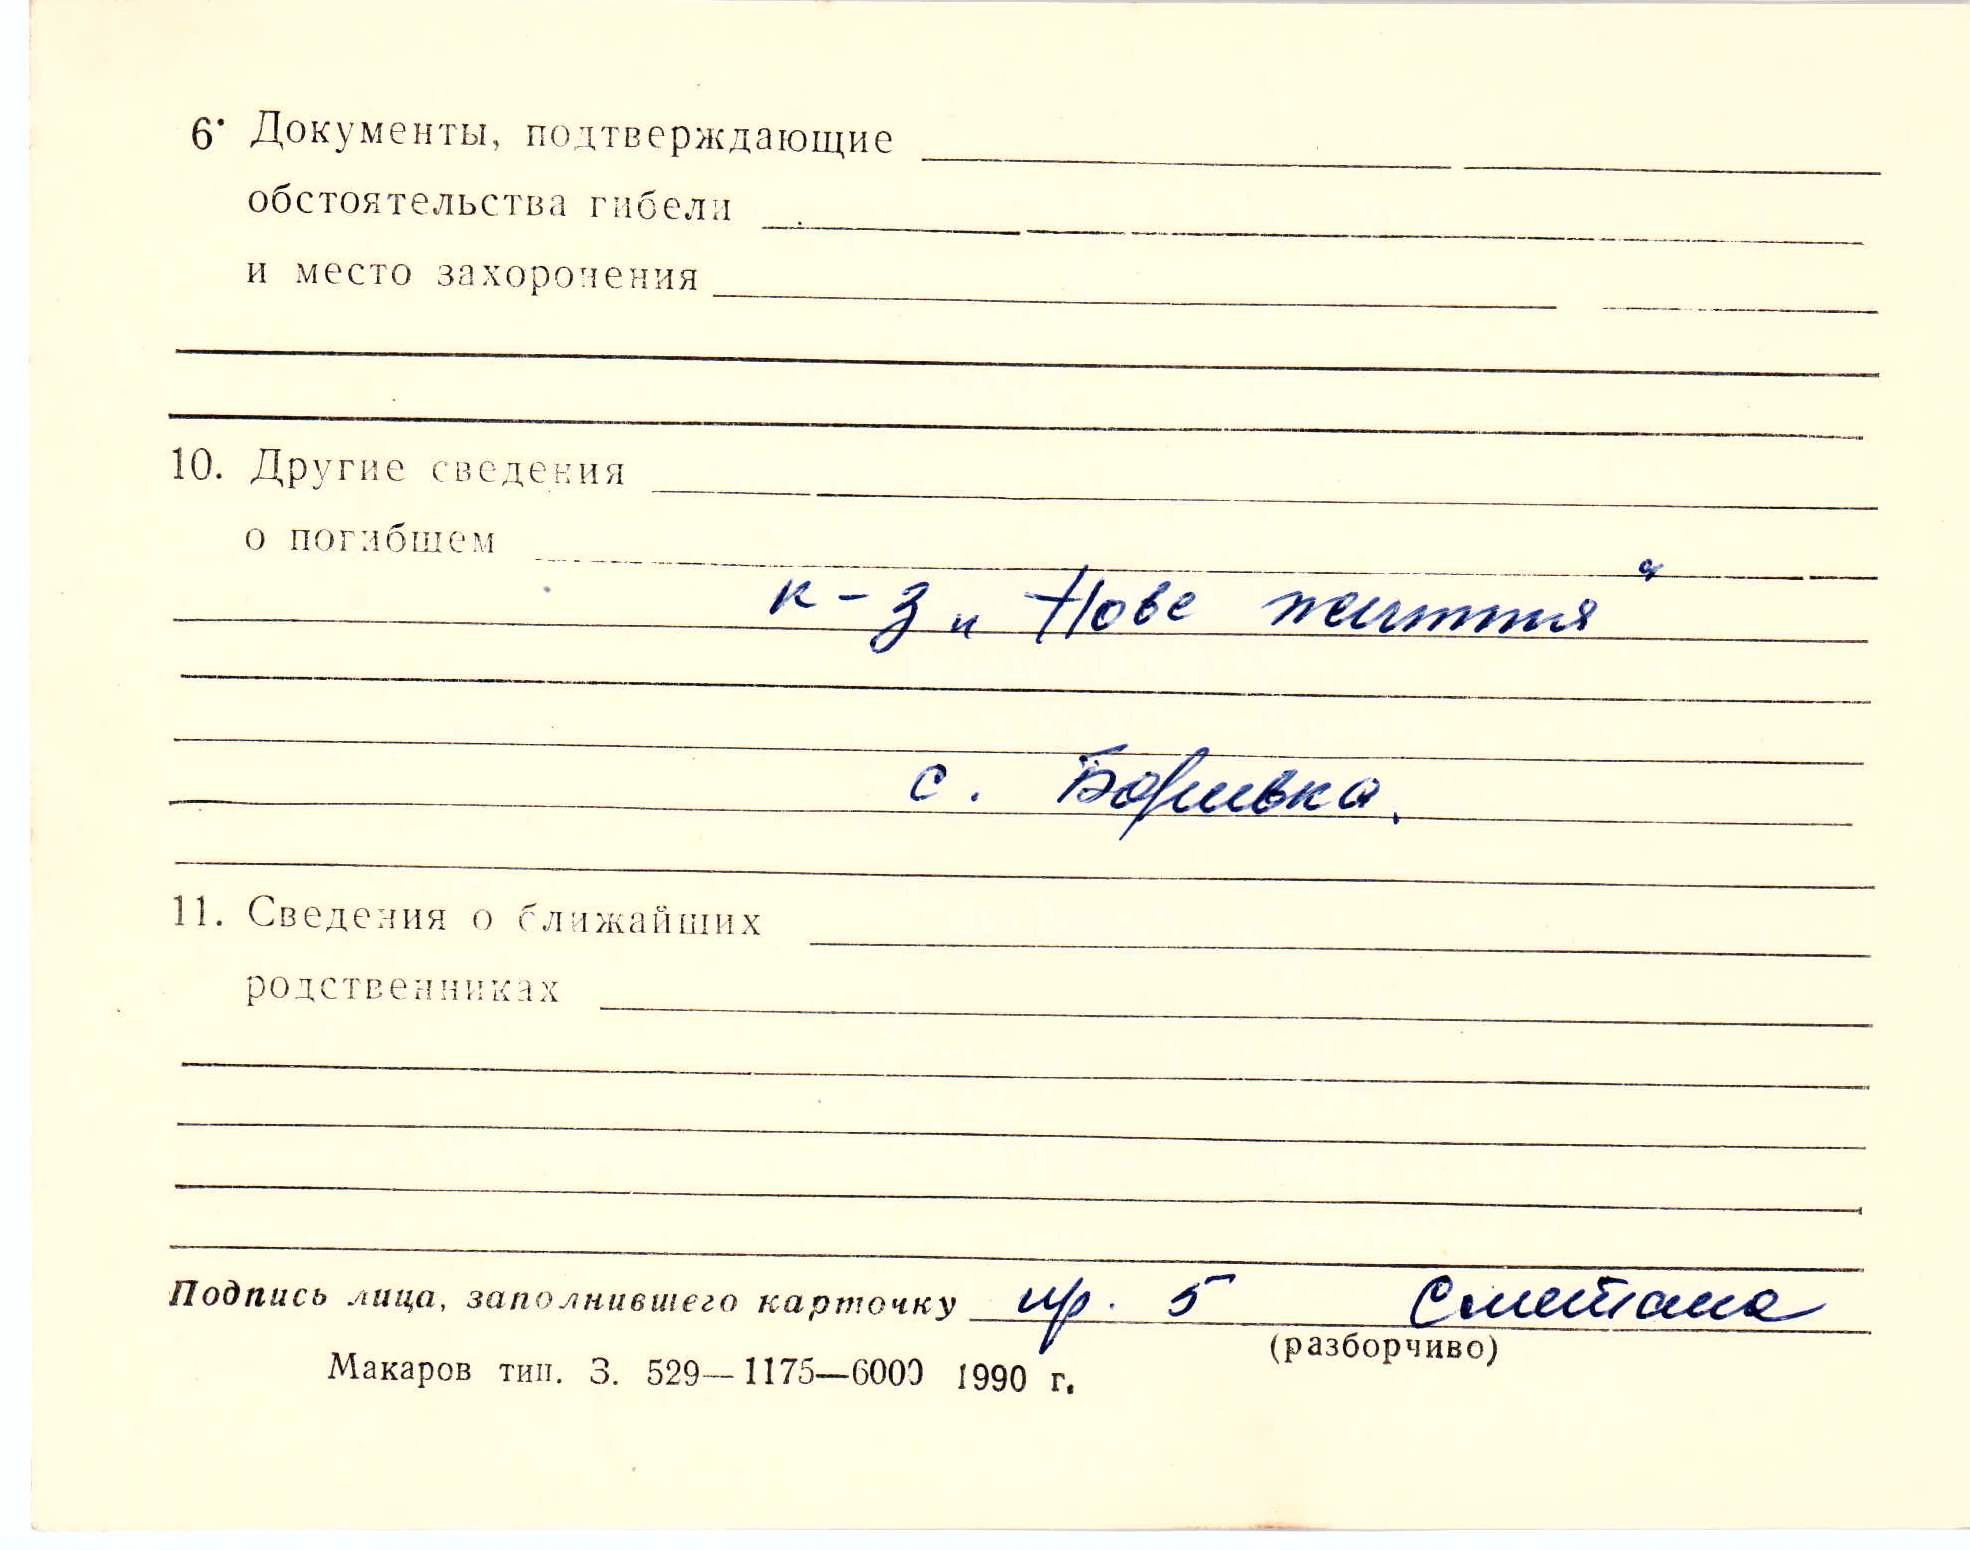 6. Документы, подтверждающие
обстоятельства гибели
и место захоронения
10. Другие сведения
о погибшем
к-з „Нове життя“
с. Боривка.
11. Сведения о ближайших
родственниках
Подпись лица, заполнившего карточку пр. 5 Сметана
(разборчиво)
Макаров тип. З. 529—1175—6000 1990 г.